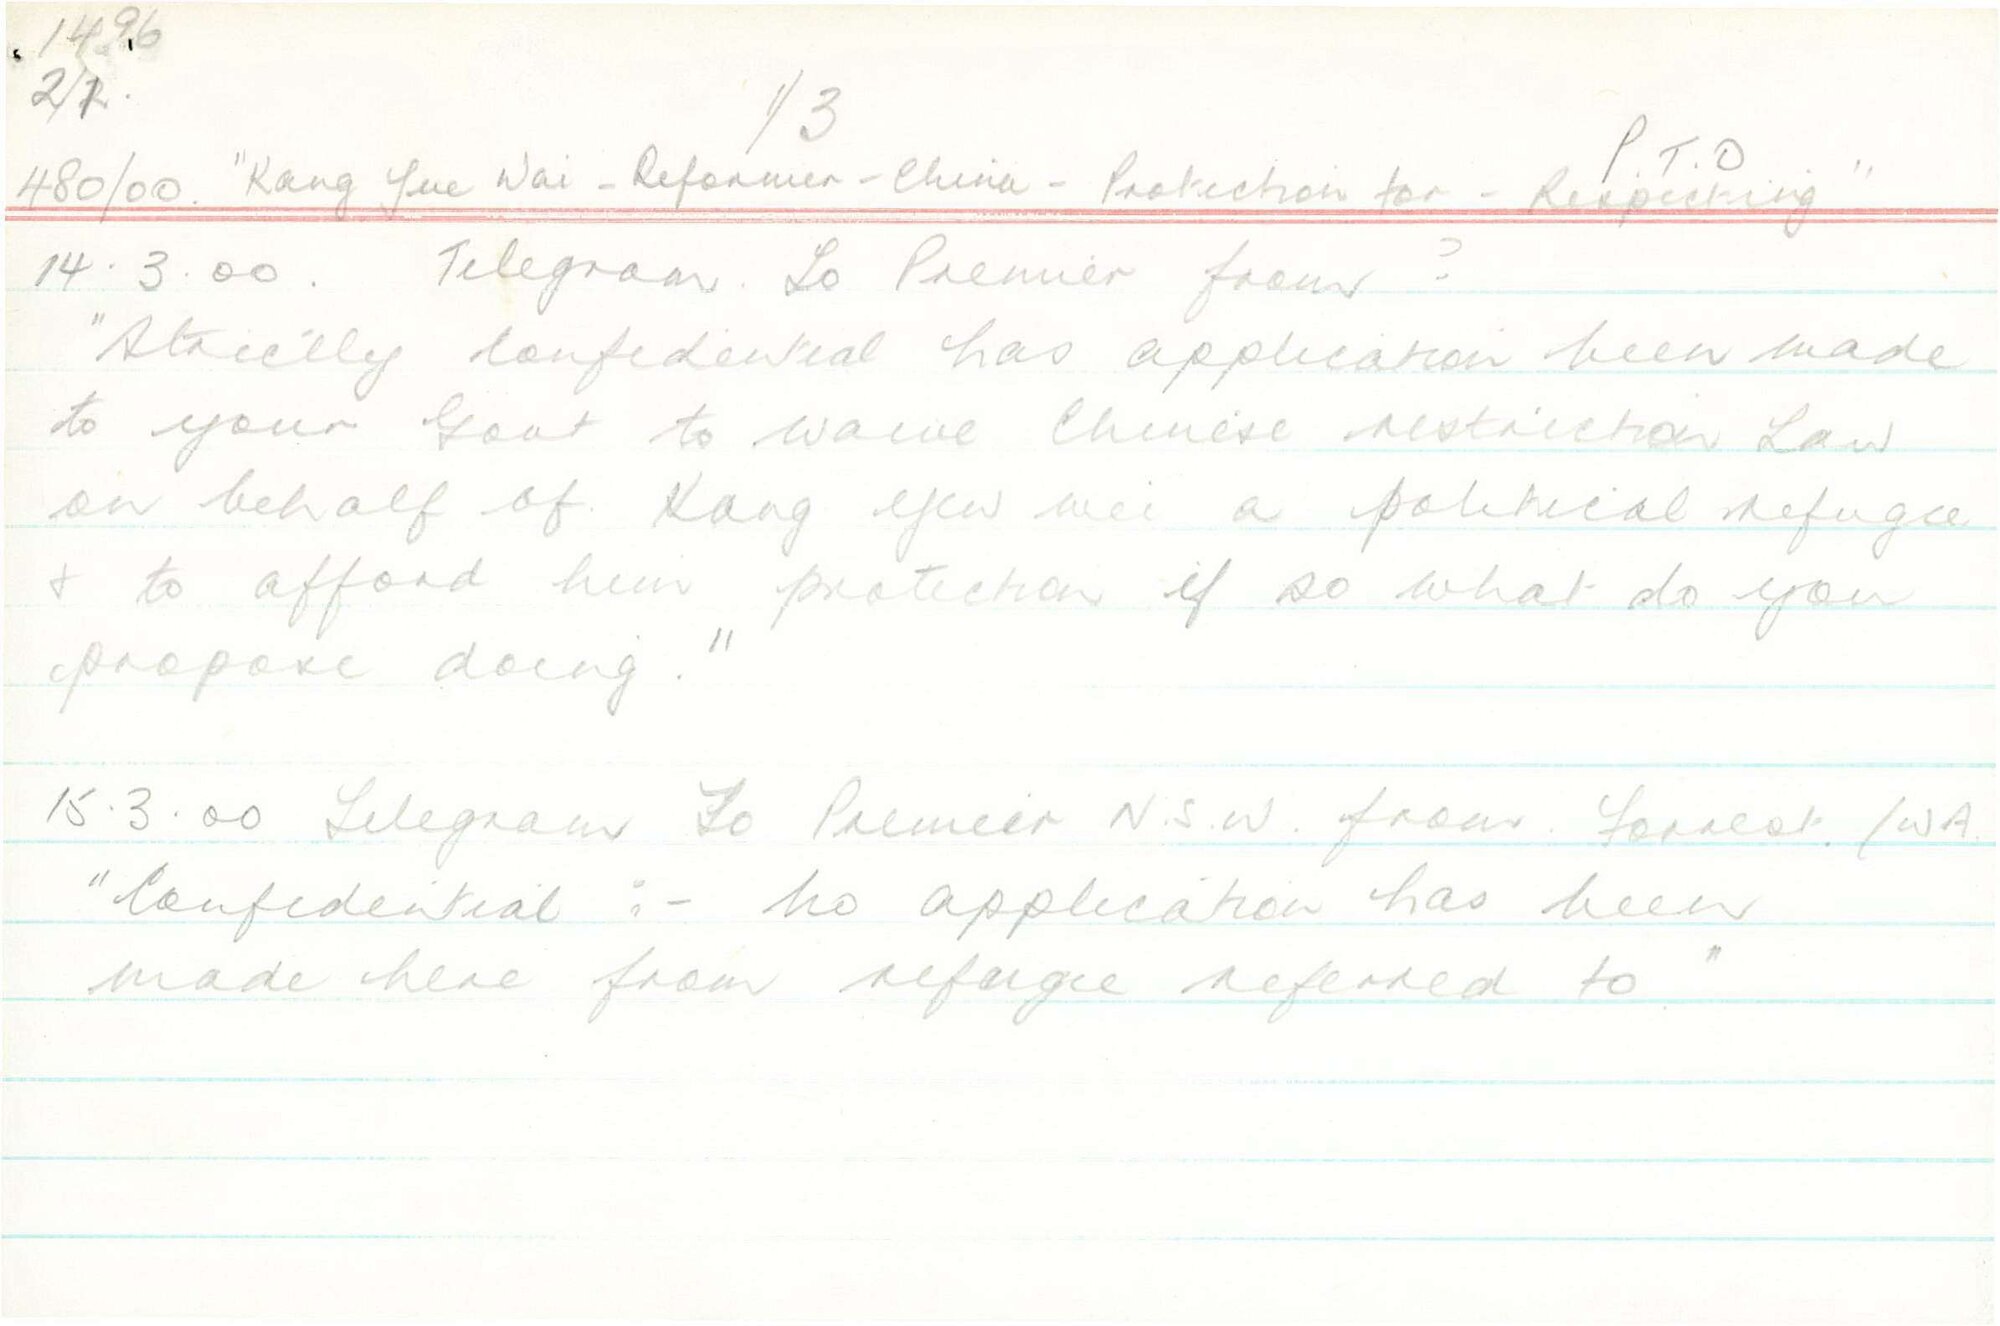 1496
2/1.
1/3
P.T.O
480/00. "Kang Yue Wai - Reformer - China - Protection for - Respecting"
14.3.00. Telegram. To Premier from ?
"Strictly Confidential has application been made
to your Govt to waive Chinese restriction Law
on behalf of Kang Yew wei a political refugee
& to afford him protection if so what do you
propose doing."
15.3.00 Telegram To Premier N.S.W. from Forrest. /WA.
"Confidential :- No application has been
made here from refugee referred to"